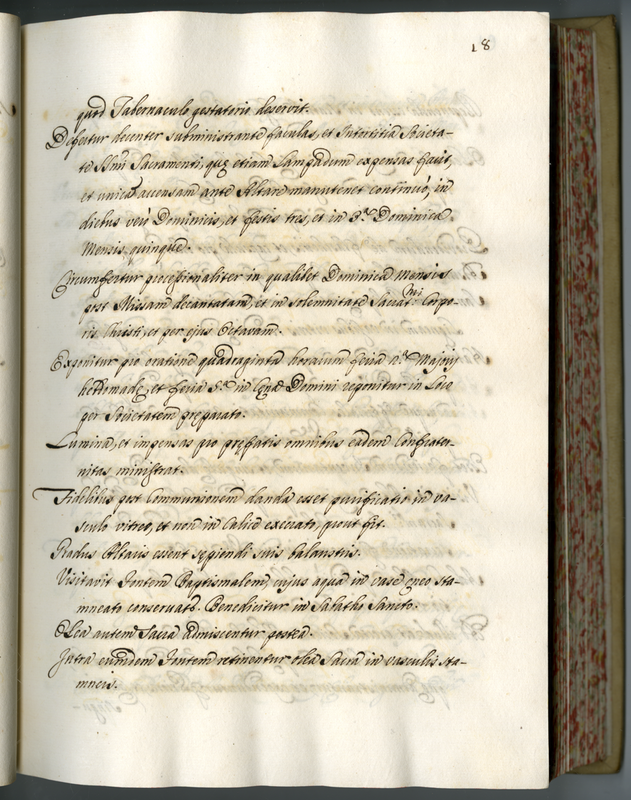 18
quod Tabernaculo gestatorio deservit.
Defertur decenter subministrante faculas, et Intortitia Societa-
te SSmi Sacramenti, quę etiam Lampadem expensas facit,
et unica accensam ante Altare manutenet continuò, in
diebus verò Dominicis, et festis tres, et in 3.a Dominica
Mensis, quinque.
Circumfertur processionaliter in qualibet Dominica Mensis
post Missam decantatam, et in solemnitate Sacrat.mi Corpo-
ris Christi, et per ejus Octavam.
Exponitur pro oratione quadraginta horarum feria 2.a Majoris
hebdomadę, et feria 5.a in Cęna Domini reponitur in Loco
per Societatem pręparato.
Lumina, et impensas pro pręfatis omnibus eadem Confrater-
nitas ministrat.
Fidelibus post Communionem danda esset purificatio in va-
sculo vitreo, et non in Calice execrato, prout fit.
Gradus Altaris essent sepiendi suis balaustris.
Visitavit Fontem Baptismalem, cujus aqua in vase ęneo sta-
mneato conservatr. Benedicitur in Sabatho Sancto.
Olea autem Sacra admiscentur postea.
Intra eumdem Fontem retinentur olea Sacra in vasculis sta-
mneis.